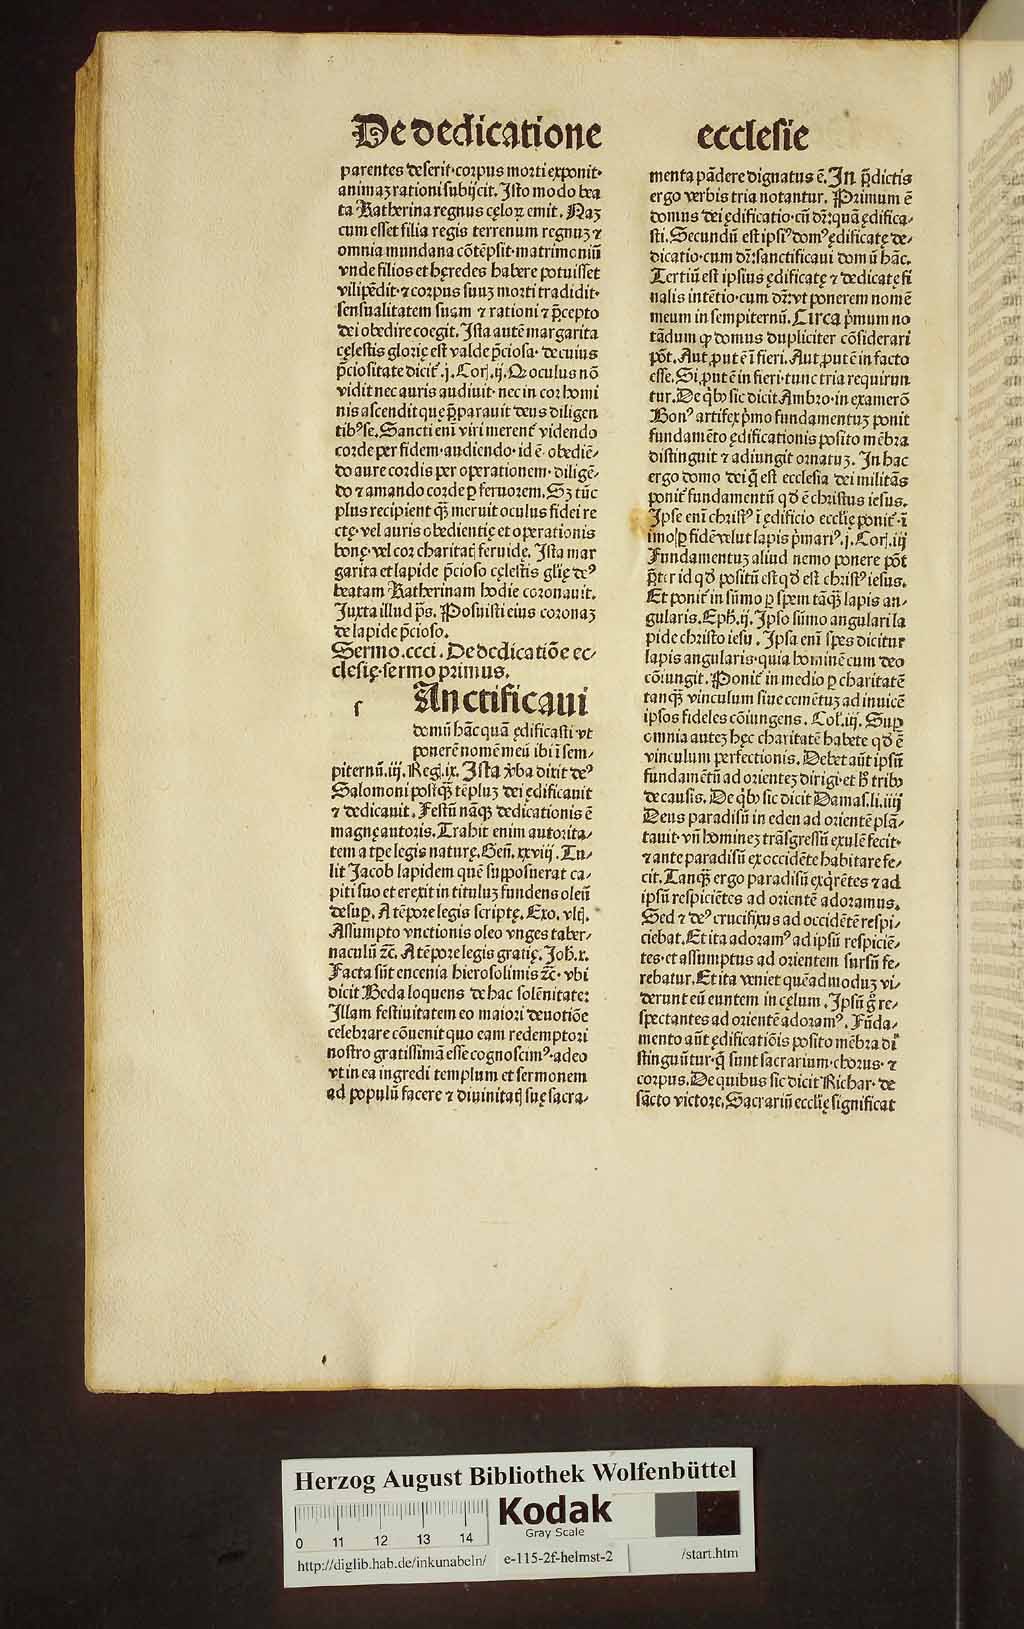 De dedicatione ecclesie
parentes deserit·corpus morti exponit·
animaʒ rationi subijcit. Isto modo bea
ta Katherina regnus cęloꝝ emit. Naʒ
cum esset filia regis terrenum regnuʒ ⁊
omnia mundana cōtēpsit·matrimoniū
vnde filios et hęredes habere potuisset
vilipēdit·⁊ corpus suuʒ morti tradidit·
sensualitatem suam ⁊ rationi ⁊ p̄cepto
dei obedire coegit. Ista autē margarita
cęlestis glorię est valde p̄ciosa·de cuius
p̄ciositate dicit᷑.j.Corj.ij.Q oculus nō
vidit nec auris audiuit·nec in cor homi
nis ascendit que p̄parauit deus diligen
tibꝰ se. Sancti enī viri merent᷑ videndo
corde per fidem·audiendo·id ē·obediē⸗
do aure cordis per operationem·diligē⸗
do ⁊ amando corde ꝑ feruorem. Sʒ tūc
plus recipient qꝫ̄ meruit oculus fidei re
ctę·vel auris obedientię et operationis
bonę·vel cor charitatꝭ feruidę. Ista mar
garita et lapide p̄cioso cęlestis glīę deꝰ
beatam Katherinam hodie coronauit.
Juxta illud ps̄. Posuisti eius coronaʒ
de lapide p̄cioso.
Sermo.ccci. De dedicatiōe ec⸗
clesię·sermo primus.
s Anctificaui
domū hāc quā ędificasti vt
ponerē nomē meū ibi ī sem⸗
piternū.iij.Reg.ix. Ista v̓ba dixit deꝰ
Salomoni postqꝫ̄ tēpluʒ dei ędificauit
⁊ dedicauit. Festū nāqꝫ dedicationis ē
magnę autoris. Trahit enim autorita⸗
tem a tꝑe legis naturę. Geñ.xxviij. Tu⸗
lit Jacob lapidem quē supposuerat ca⸗
piti suo et erexit in tituluʒ fundens oleū
desuꝑ. A tēpore legis scriptę. Exo. vlꝭ.
Assumpto vnctionis oleo vnges taber⸗
naculū ⁊c̄. A tēpore legis gratię. Joh̄.x.
Facta sūt encenia hierosolimis ⁊c̄·vbi
dicit Beda loquens de hac solēnitate:
Illam festiuitatem eo maiori deuotiōe
celebrare cōuenit quo eam redemptori
nostro gratissimā esse cognoscimꝰ·adeo
vt in ea ingredi templum et sermonem
ad populū facere ⁊ diuinitatꝭ suę sacra⸗
menta pādere dignatus ē. In p̄dictis
ergo verbis tria notantur. Primum ē
domus dei ędificatio·cū dr̄:quā ędifica⸗
sti. Secundū est ipsiꝰ domꝰ ędificatę de⸗
dicatio·cum dr̄:sanctificaui domū hāc.
Tertiū est ipsius ędificatę ⁊ dedicatę fi
nalis intētio·cum dr̄:vt ponerem nomē
meum in sempiternū. Circa p̓mum no
tādum ꝙ domus dupliciter cōsiderari
pōt. Aut ꝓut ē ī fieri. Aut ꝓut ē in facto
esse. Si ꝓut ē in fieri·tunc tria requirun
tur. De qͥbꝰ sic dicit Ambro·in examerō
Bonꝰ artifex p̓mo fundamentuʒ ponit
fundamēto ędificationis posito mēbra
distinguit ⁊ adiungit ornatuʒ. In hac
ergo domo dei q̄ est ecclesia dei militās
ponit᷑ fundamentū qd̓ ē christus iesus.
Ipse enī christꝰ ī ędificio ecclīę ponit᷑·ī
imo ꝑ fidē velut lapis p̓mariꝰ.j.Corj.iij
Fundamentuʒ aliud nemo ponere pōt
p̄ter id qd̓ positū est qd̓ est christꝰ iesus.
Et ponit᷑ in sūmo ꝑ spem tāqꝫ̄ lapis an⸗
gularis. Eph̓.ij. Ipso sūmo angulari la
pide christo iesu. Ipsa enī spes dicitur
lapis angularis·quia hominē cum deo
cōiungit. Ponit᷑ in medio ꝑ charitatē
tanqꝫ̄ vinculum siue cemētuʒ ad inuicē
ipsos fideles cōiungens. Col̓.iij. Suꝑ
omnia auteʒ hęc charitatē habete qd̓ ē
vinculum perfectionis. Debet aūt ipsū
fundamētū ad orienteʒ dirigi·et h̓ tribꝰ
de causis. De qͥbꝰ sic dicit Damas.li.iiij
Deus paradisū in eden ad orientē plā⸗
tauit·vn̄ homineʒ trāsgressū exulē fecit·
⁊ ante paradisū ex occidēte habitare fe⸗
cit. Tanqꝫ̄ ergo paradisū exqͥrētes ⁊ ad
ipsū respiciētes ad orientē adoramus.
Sed ⁊ deꝰ crucifixus ad occidētē respi⸗
ciebat. Et ita adoramꝰ ad ipsū respiciē⸗
tes·et assumptus ad orientem sursū fe⸗
rebatur. Et ita veniet quēadmoduʒ vi⸗
derunt eū euntem in cęlum. Ipsū g̊ re⸗
spectantes ad orientē adoramꝰ. Fūda⸗
mento aūt ędificatiōis posito mēbra di
stinguūtur·q̄ sunt sacrarium·chorus·⁊
corpus. De quibus sic dicit Richar·de
sācto victore. Sacrariū ecclīę significat
Herzog August Bibliothek Wolfenbüttel
Kodak
Gray Scale
0 11 12 13 14
http://diglib.hab.de/inkunabeln/ e-115-2f-helmst-2 /start.htm